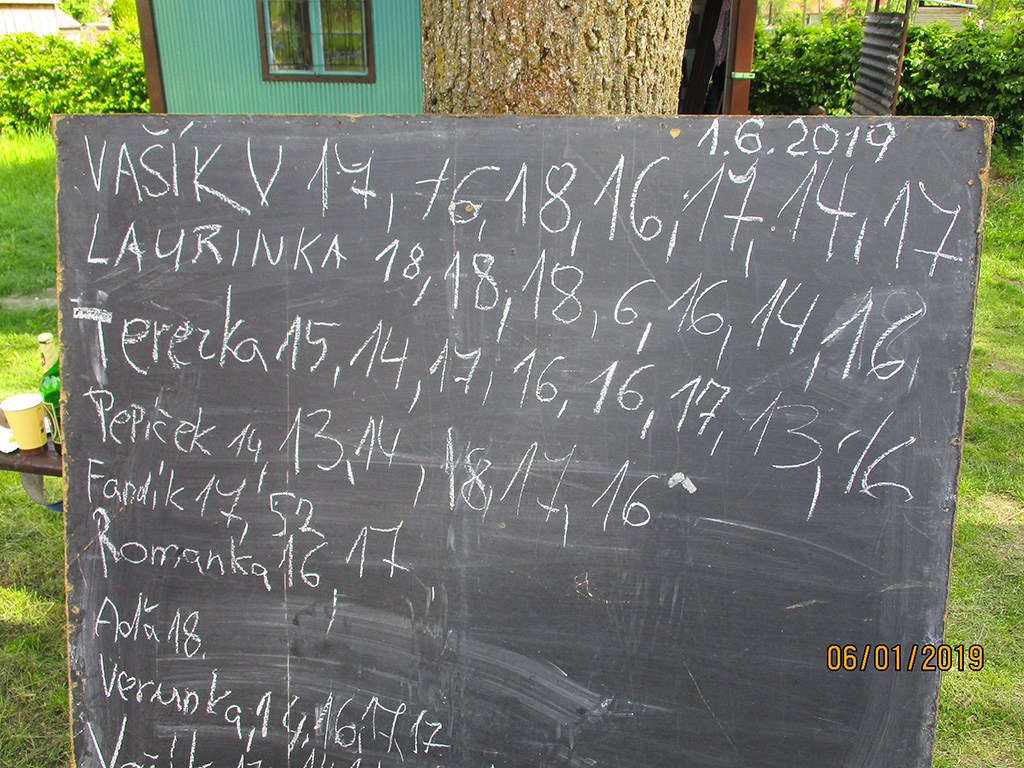 1.6.2019
VAŠÍK V 17, 16, 18, 16, 17, 14, 17
LAURINKA 18, 18, 18, 6, 16, 14, 18,
Terezka 15, 14, 17, 16, 16, 17, 13, 16
Pepíček 14, 13, 14, 18, 17, 16
Fandík 17, 52
Romanka 16, 17,
Adá 18,
06/01/2019
Verunka, 14, 16, 17, 17